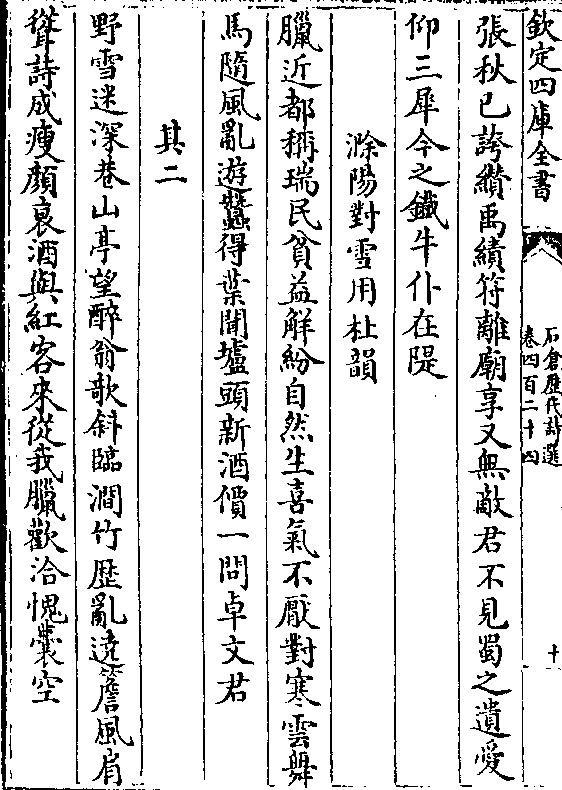 欽定四庫全書
石倉歴代詩選
卷四百二十四
十
張秋已誇纘禹績符離廟享又無敵君不見蜀之遺愛
仰三犀今之鐵牛仆在隄
滁陽對雪用杜韻
臘近都稱瑞民貧益解紛自然生喜氣不厭對寒雲舞
馬隨風亂遊蠶得葉聞壚頭新酒價一問卓文君
其二
野雪迷深巷山亭望醉翁欹斜臨澗竹歴亂遶簷風肩
聳詩成瘦顔衰酒與紅客來從我臘歡洽愧囊空